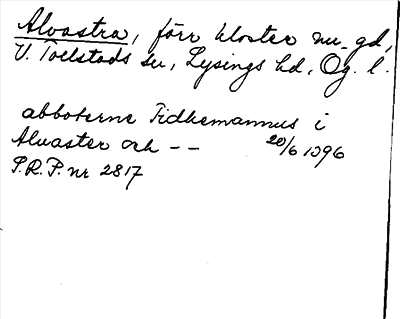 Alvastra, förr kloster nu gd,
V. Tollstads sn, Lysings hd, Ög. l.
abboterne Tidhemannus i
Alvaster och -- 20/6 1396
S.R.P. nr 2817